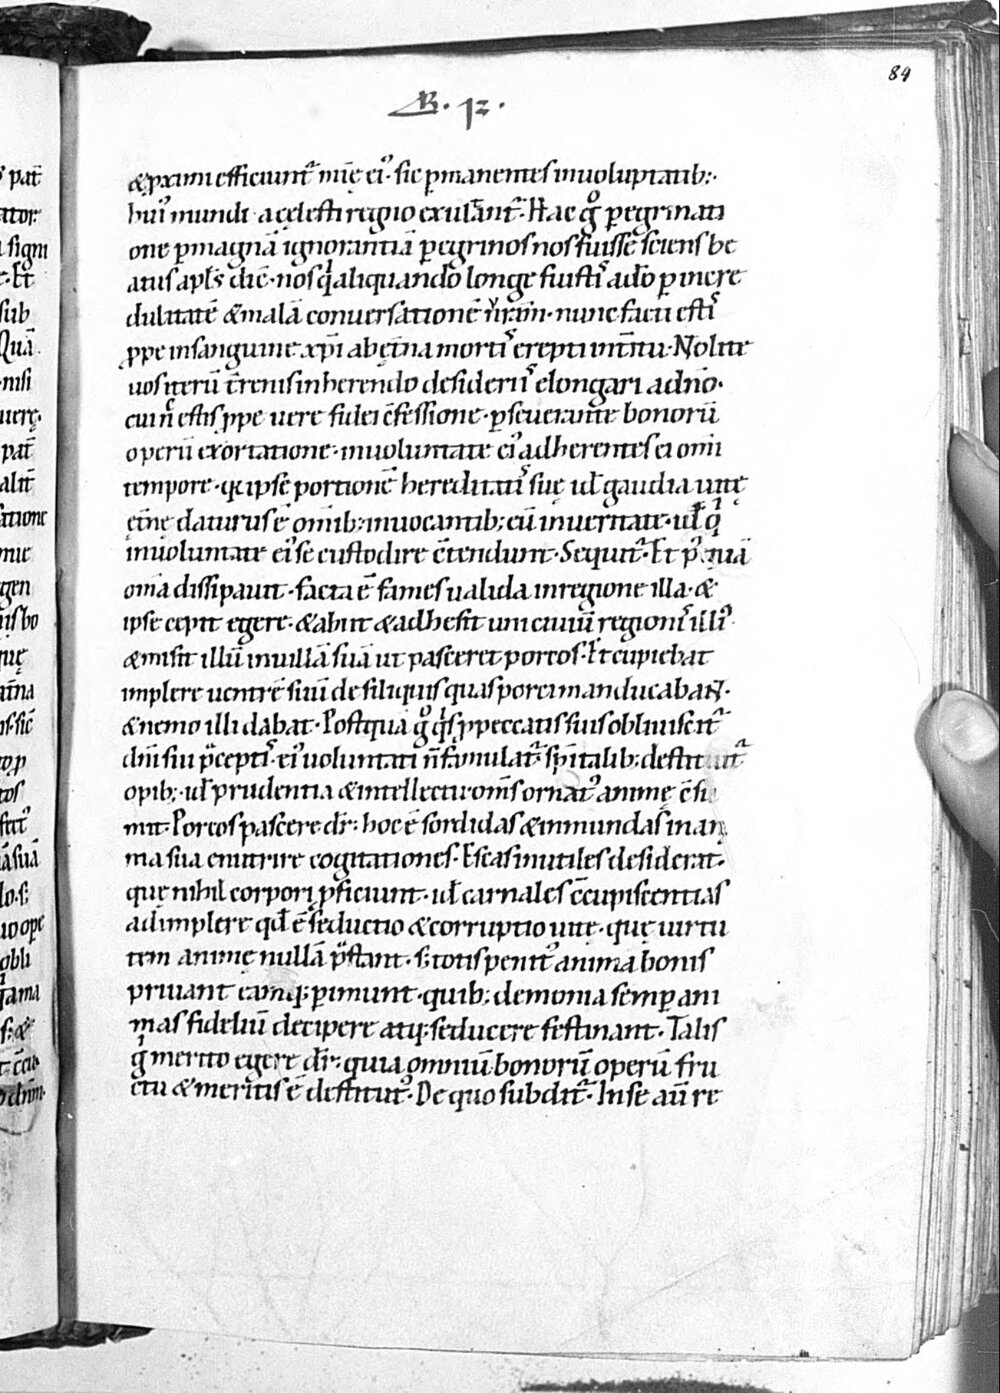 84
R. 12.
& p̱ximi efficiunt᷑ mīę ei᷒· sic p̱manentes in uoluptatib;·
hui᷒ mundi· a cęlesti regio exulant᷑· Hac gͦ p̱egrinati
one p̱ magnā ignorantiā p̱egrinos nos fuisse sciens be
atus apl̄s dic̄· nos q̇ aliquando longe fuistis a dō p̱ incre
dulitatē & malā conuersationē ur̄am· nunc facti estis
ꝓpe in sanguine xp̄i ab ęt̄na mortis erepti int̄itu· Nolite
uos iterū t̄renis inherendo desideriis elongari a dn̄o·
cui n̄ estis ꝓpe uere fidei c̄fessione· p̱seuerante bonorū
operū exortatione· in uoluntate ei᷒ adherentes ei omī
tempore· q ipse portionē hereditatis suę ul̄ gaudia uitę
ęt̄nę daturus ē om̄ib; inuocantib; eū in ueritate· ul̄ q̇
in uoluntate ei᷒ se custodire c̄tendunt· Sequit᷑· Et p᷒ quā
om̄a dissipauit· facta ē fames ualida in regione illa· &
ipse cepit egere· & abiit & adhesit uni ciuiū regionis illi᷒·
& misit illū in uillā suā ut pasceret porcos· Et cupiebat
implere uentrē suū de siliquis quas porci manducabant·
& nemo illi dabat· Postquā gͦ q̇s ꝓ peccatis suis obliuiscit᷑
dn̄i sui p̄ceptis· ei᷒ uoluntati n̄ famulat᷑· sp̄italib; destituit᷑
opib;· ul̄ prudentia & intellectu om̄s ornat᷒ animę c̄su
mit· Porcos pascere dr̄· hoc ē sordidas & inmundas in ani
ma sua enutrire cogitationes· Escas inutiles desiderat·
quę nihil corpori ꝓficiunt· ul̄ carnales c̄cupiscentias
adimplere qd̄ ē seductio & corruptio uitę· quę uirtu
tem animę nullā p̄stant· s; totis penit᷒ anima bonis
priuant eamq; p̱imunt· quib; demonia semp̱ ani
mas fideliū decipere atq; seducere festinant· Talis
g̊ merito egere dr̄· quia omniū bonorū operū fru
ctu & meritis ē destitut᷒· De quo subdit᷑· In se aū re